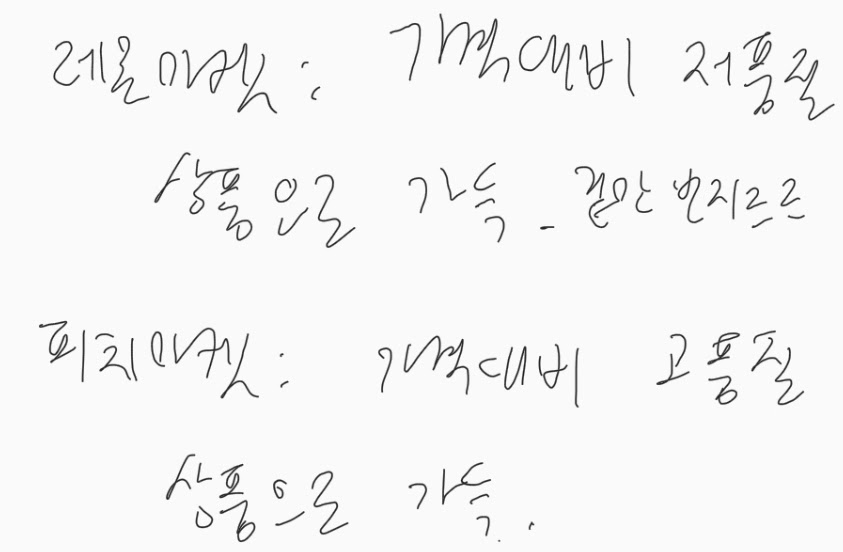 레몬마켓: 가격대비 저품질
상품으로 가득 - 겉만 번지르르
피치마켓: 가격대비 고품질
상품으로 가득.